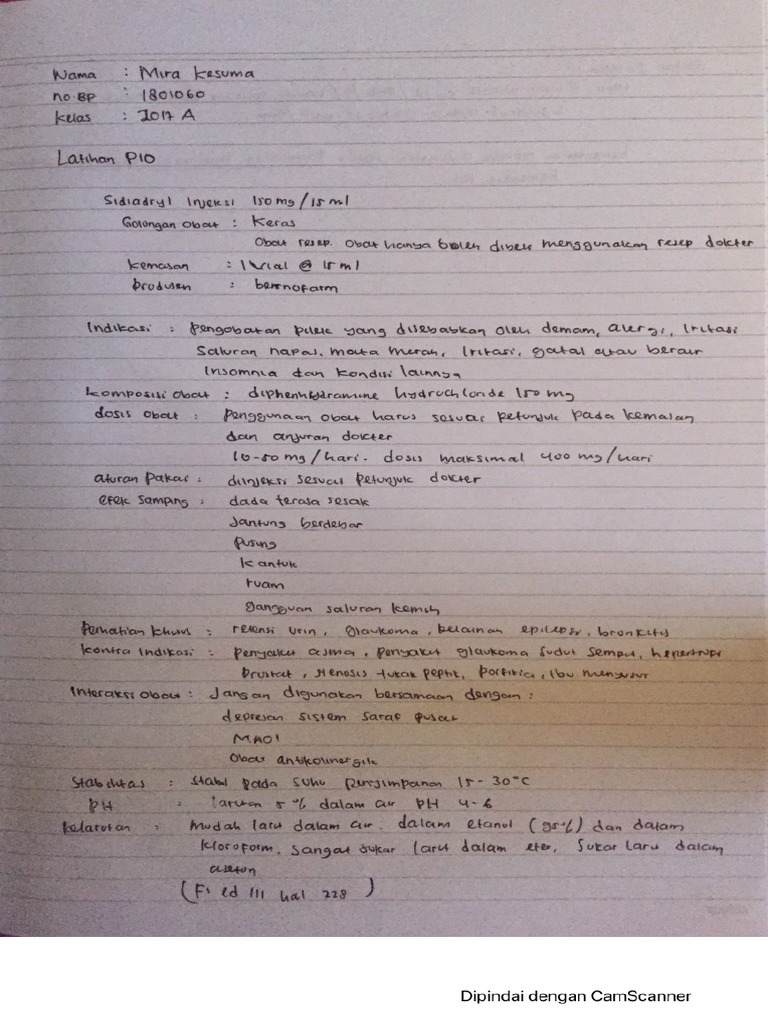 Nama : Mira Kesuma
no.BP : 1801060
Kelas : 2017 A
Latihan PIO
Sidiadryl Injeksi 150 mg/15 ml
Golongan Obat : Keras
Obat resep. Obat hanya boleh dibeli menggunakan resep dokter
Kemasan : 1 Vial @ 15 ml
Produsen : bernofarm
Indikasi : Pengobatan pilek yang disebabkan oleh demam, alergi, Iritasi
Saluran napas, mata merah, Iritasi, gatal atau berair
Insomnia dan kondisi lainnya
Komposisi obat : diphenhydramine hydrochloride 150 mg
dosis obat : penggunaan obat harus sesuai petunjuk pada kemasan
dan anjuran dokter
10-50 mg/hari. dosis maksimal 400 mg/hari
aturan Pakai : diinjeksi sesuai petunjuk dokter
efek samping : dada terasa sesak
Jantung berdebar
Pusing
Kantuk
ruam
gangguan saluran kemih
Perhatian khusus : retensi urin, glaukoma, kelainan epilepsi, bronkitis
Kontra Indikasi : Penyakit asma, penyakit glaukoma sudut sempit, hipertropi
Prostat, stenosis tukak peptik, Porfiria, Ibu menyusui
Interaksi Obat : Jangan digunakan bersamaan dengan :
depresan sistem saraf pusat
MAOI
Obat antikolinergik
Stabilitas : Stabil pada suhu penyimpanan 15 - 30°C
PH : larutan 5 % dalam air PH 4-6
Kelarutan : mudah larut dalam air. dalam etanol (95%) dan dalam
kloroform. sangat sukar larut dalam eter, sukar larut dalam
aseton
(FI ed III hal 228)
Dipindai dengan CamScanner